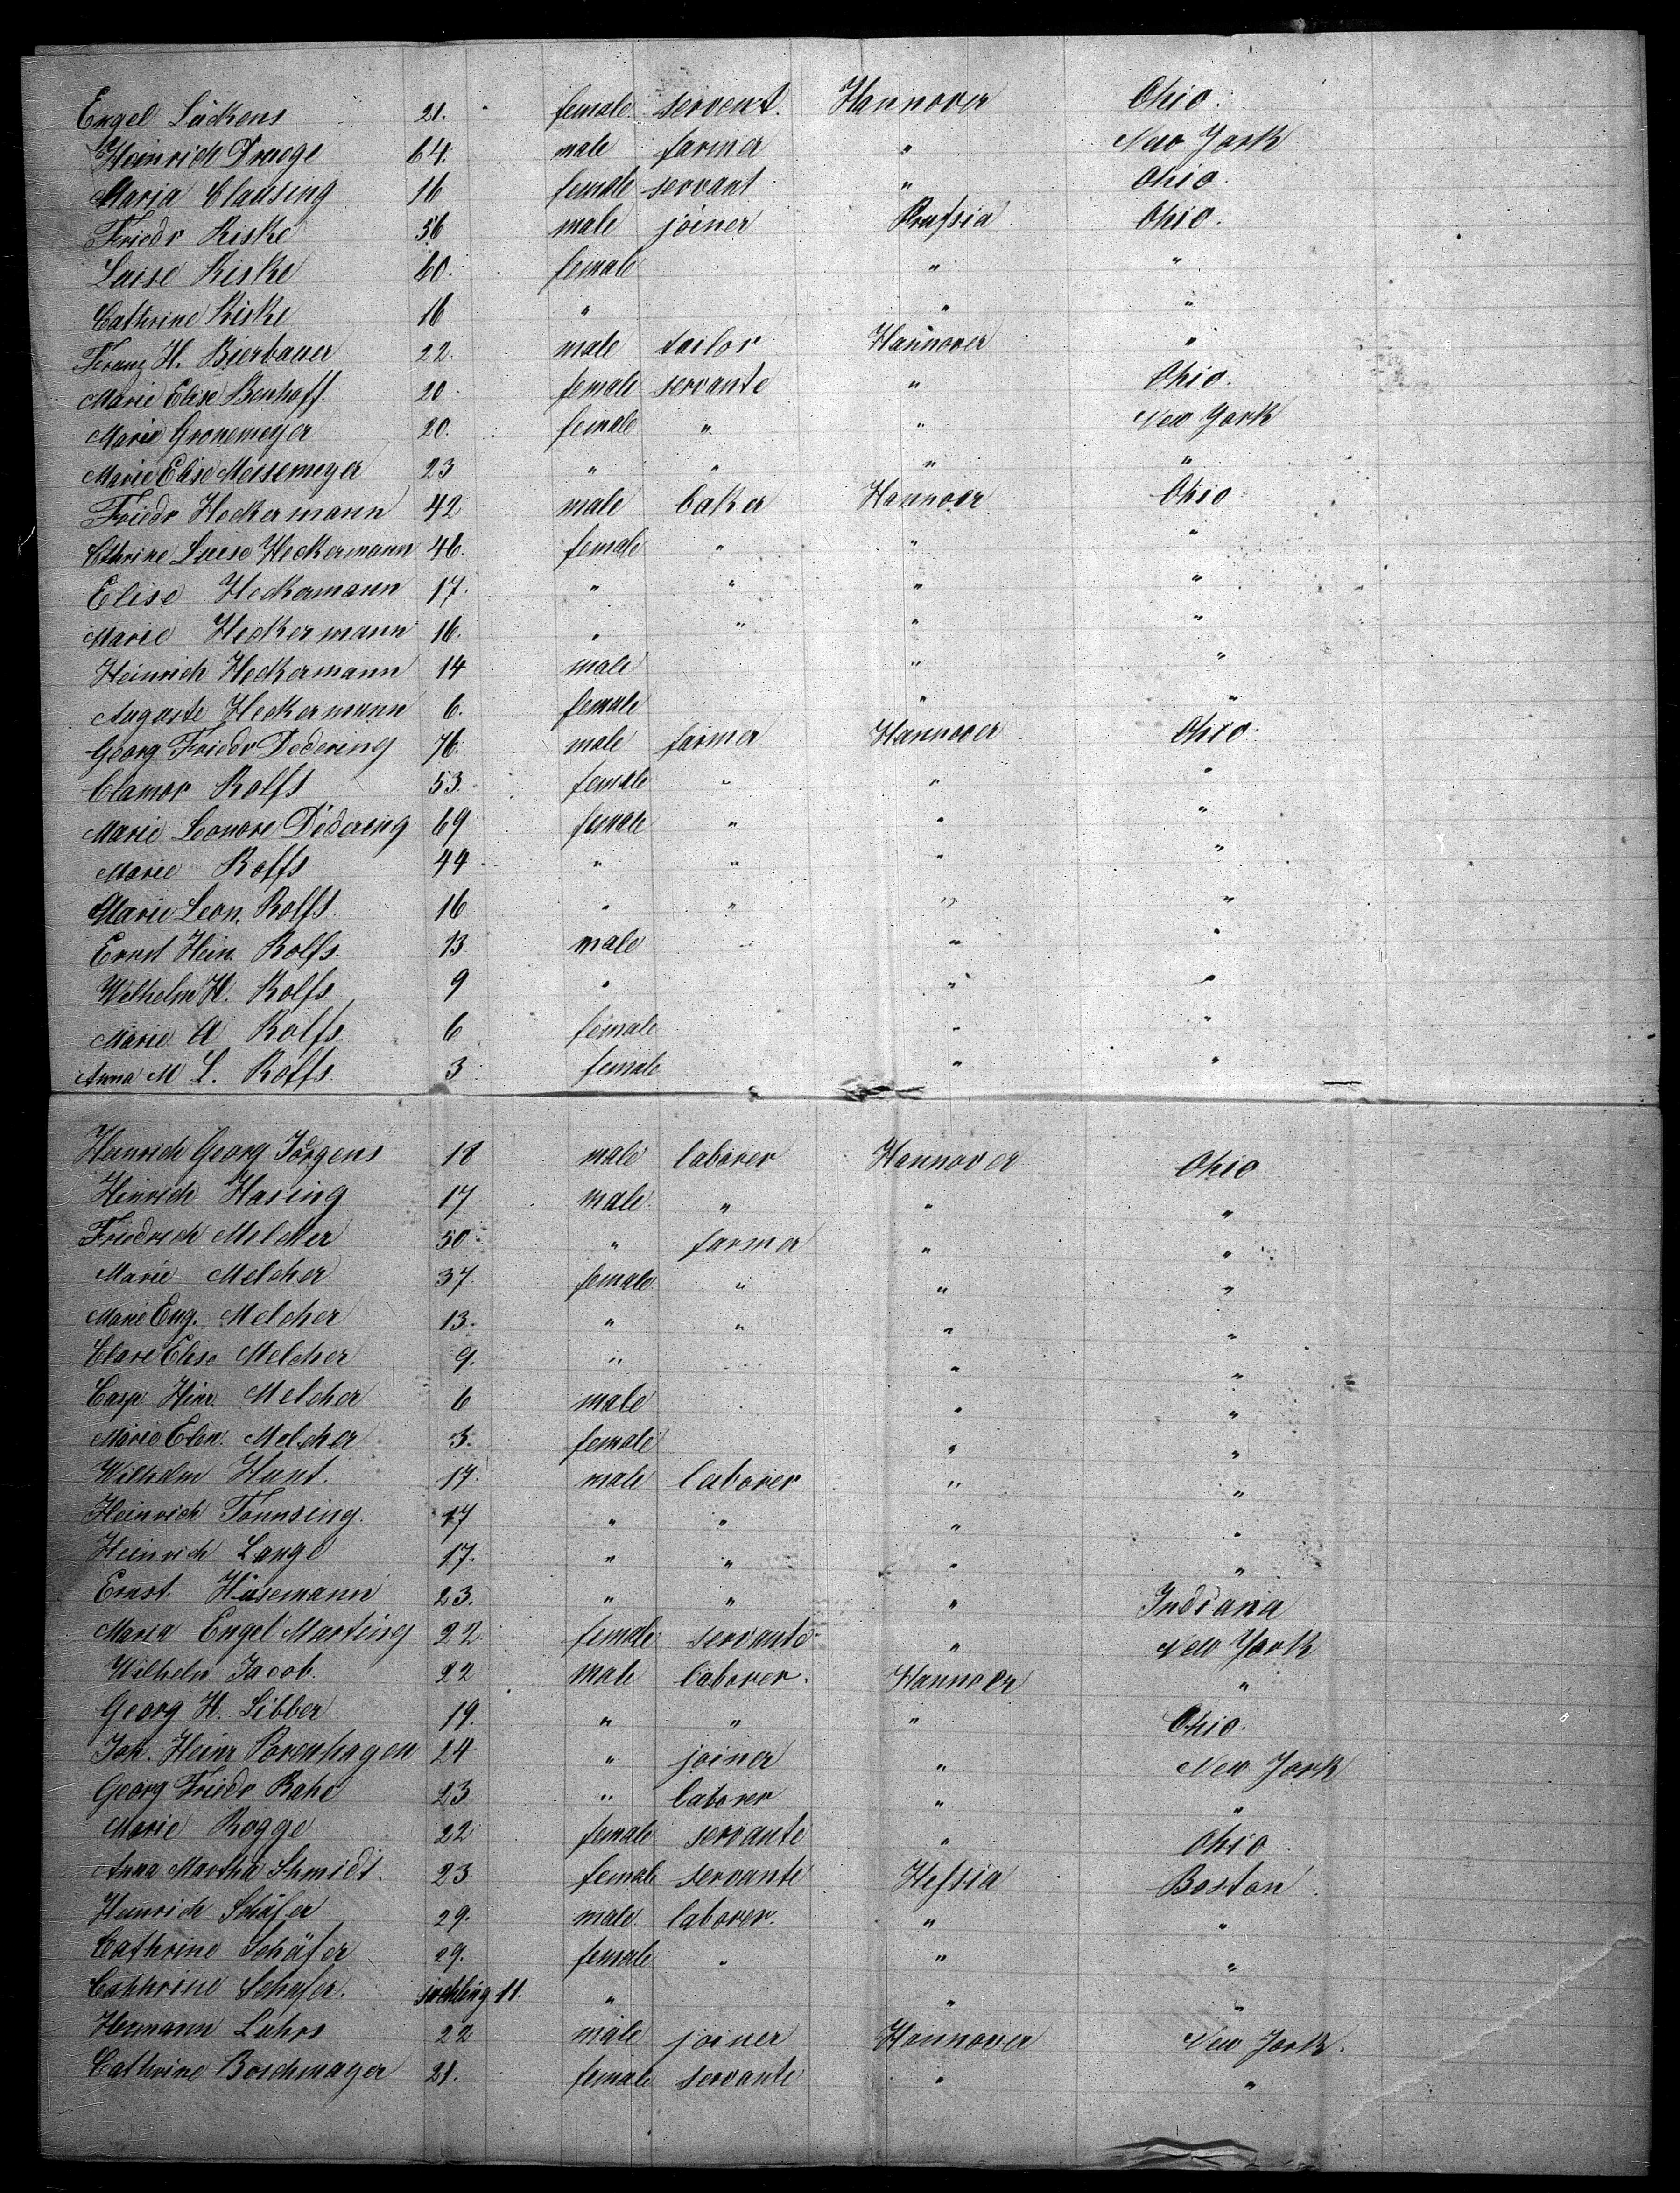 Engel Lückens 21. female servent. Hannover Ohio.
Heinrich Droege 64. male farmer " New York
Maria Clausing 16 female servant " Ohio.
Friedr Kiske 56 male joiner Prussia Ohio.
Luise Kiske 60. female " "
Cathrine Kiske 16 " " "
Franz H. Bierbauer 22. male tailor Hannover "
Marie Elise Benhoff 20 female servante " Ohio.
Marie Gronemeyer 20. female " " New York
Marie Elise Meisemeyer 23 " " " "
Friedr Heckermann 42 male baker Hannover Ohio
Cthrine Luise Heckermann 46. female " " "
Elise Heckermann 17. " " " "
Marie Heckermann 16. " " " "
Heinrich Heckermann 14 male " "
Auguste Heckermann 6. female " "
Georg Friedr Dedering 76. male farmer Hannover Ohio.
Clamor Rolfs 53. female " " "
Marie Leonore Dedering 69 female " " "
Marie Rolfs 44 " " " "
Marie Leon. Rolfs. 16 " " " "
Ernst Hein. Rolfs. 13 male " " "
Wilhelm H. Rolfs 9 " " "
Marie A Rolfs. 6 female " "
Anna M L. Rolfs. 3 female " "
Heinrich Georg Jörgens 18 male laborer Hannover Ohio
Heinrich Hasing 17 male " " "
Friedrich Melcher 50 " farmer " "
Marie Melcher 37 female " " "
Marie Eng. Melcher 13. " " " "
Clare Elise Melcher 9. " " "
Casp Hinr. Melcher 6 male " "
Marie Elen. Melcher 3. female " "
Wilhelm Hunt. 17. male laborer " "
Heinrich Tönnsing. 17 " " " "
Heinrich Lange 17. " " " "
Ernst. Hüsemann 23. " " " Indiana
Maria Engel Marting 22 female servante " New York
Wilhelm Jacob. 22 male laborer. Hannover "
Georg H. Sibber 19. " " " Ohio.
Joh. Heinr Porenhagen 24 " joiner " New York
Georg Friedr Rahe 23 " laborer " "
Marie Rogge 22 female servante " Ohio
Anna Martha Schmidt. 23 female servante Hessia Boston
Heinrich Schäfer 29. male laborer. " "
Cathrine Schäfer 29. female " " "
Cathrine Schäfer. suckling 11. " " "
Hermann Luhrs 22 male joiner Hannover New York.
Cathrine Boschmayer 21. female servante " "